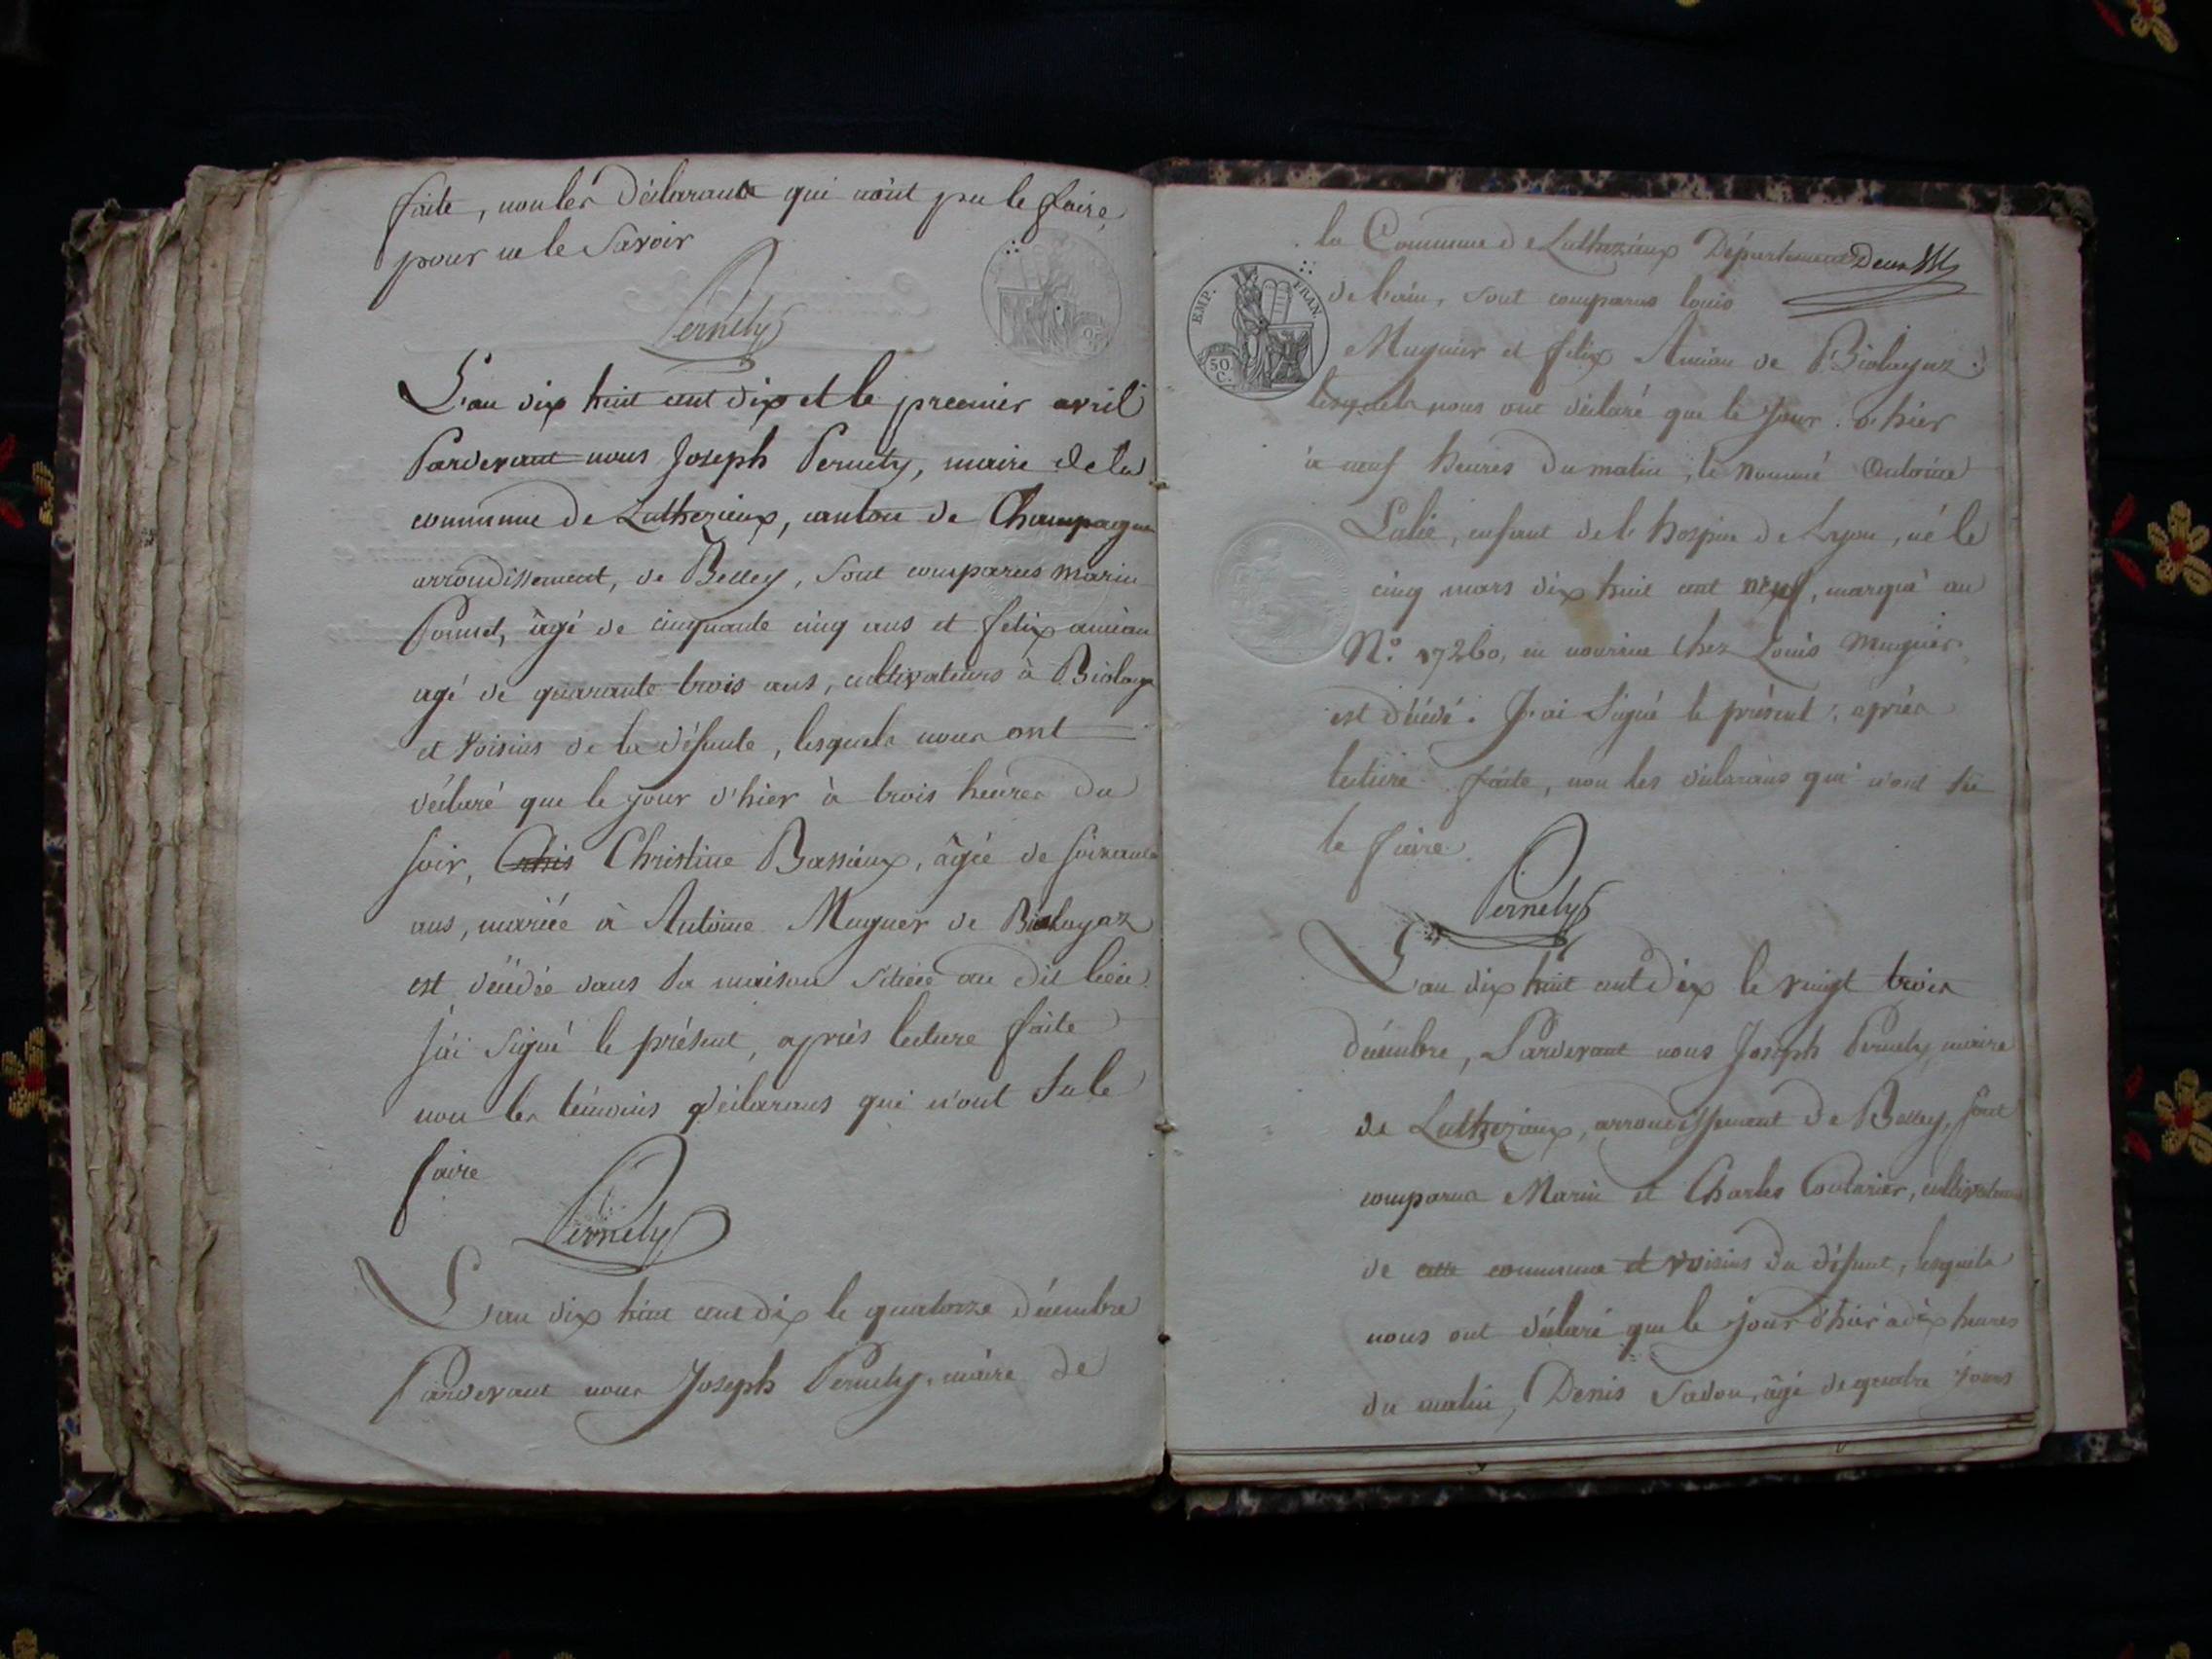 faite, non les déclarants qui n'ont pu le faire
pour ne le Savoir
Pernety
L'an dix huit cent dix et le premier avril
Pardevant nous Joseph Pernety, maire de la
commune de Luthezieux, canton de Champagne
arrondissement, de Belley, sont comparus marin
Pomet, âgé de cinquante cinq ans et felix amian
agé de quarante trois ans, cultivateurs à Biolaya
et voisins de la défunte, lesquels nous ont
déclaré que le jour d'hier à trois heures du
soir, Chris Christine Bassieux, âgée de soixante
ans, mariée à Antoine Muguer de Biolayaz
est décédée dans sa maison sitiée au dit lieu
j'ai signé le présent, après lecture faite
non les témoins déclarans qui n'ont su le
faire
Pernety
L'an dix huit cent dix le quatorze décembre
Pardevant nous Joseph Pernety, maire de
la Commune de Luthezieux Département Deux
EMP. FRAN.
50 C.
de l'ain, sont comparus louis
Muguier et felix Amian de Biolayaz
lesquels nous ont déclaré que le jour d'hier
à neuf heures du matin, le nommé Antoine
Lalie, enfant de l'hospice de Lyon, né le
cinq mars dix huit cent neuf, marqué au
N.o 17260, en nourice chez Louis Muguier
est décédé. J'ai signé le présent, après
lecture faite, non les déclarans qui n'ont su
le faire.
Pernety
L'an dix huit cent dix le vingt trois
décembre, Pardevant nous Joseph Pernety maire
de Luthezieux, arrondissement de Belley, sont
comparus Marin et Charles Couturier, cultivateurs
de cette commune et voisins du défunt, lesquels
nous ont déclaré que le jour d'hier à dix heures
du matin, Denis Sadou, âgé de quatre jours